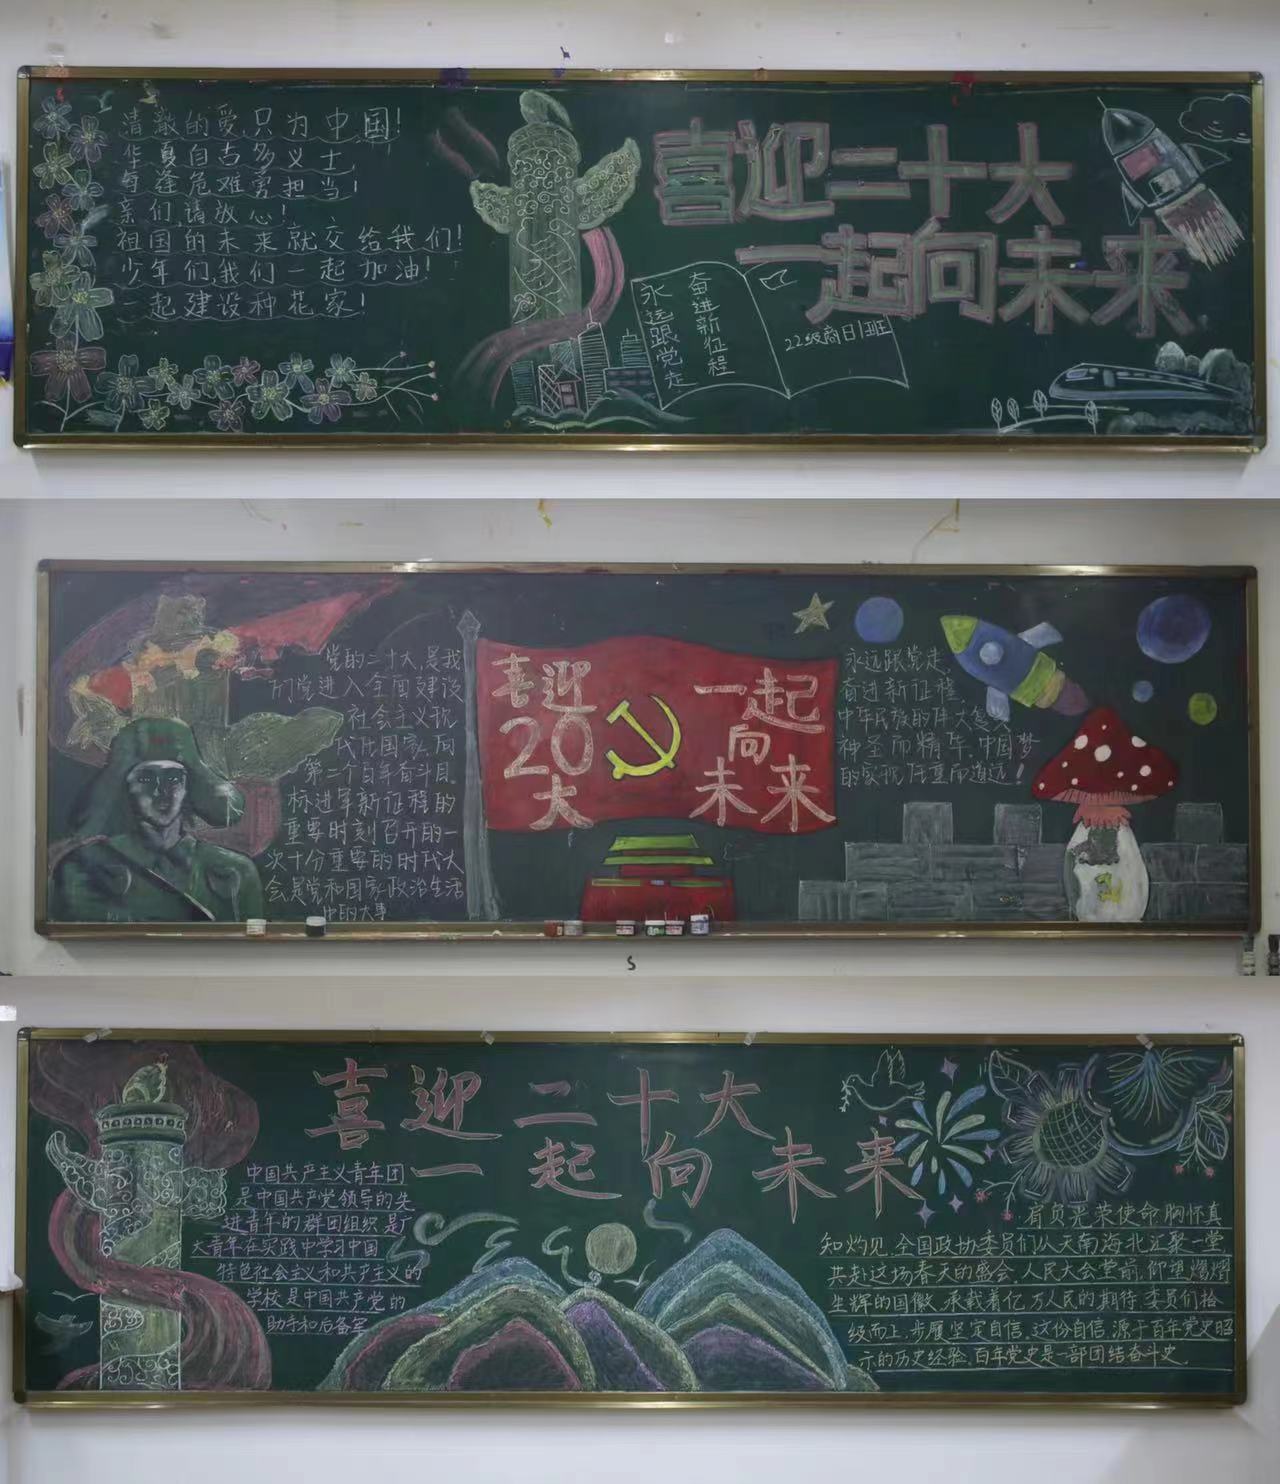 清澈的爱,只为中国!
华夏自古多义士,
每逢危难勇担当!
亲们,请放心!
祖国的未来就交给我们!
少年们,我们一起加油!
一起建设种花家!
喜迎二十大
一起向未来
奋进新征程
永远跟党走
22级商日1班
党的二十大,是我
们党进入全面建设
社会主义现
代化国家,向
第二个百年奋斗目
标进军新征程的
重要时刻召开的一
次十分重要的时代大
会是党和国家政治生活
中的大事
喜迎
20
大
一起
向
未来
永远跟党走,
奋进新征程,
中华民族的伟大复兴
神圣而精华,中国梦
的实现任重而道远!
S
喜迎二十大
一起向未来
中国共产主义青年团
是中国共产党领导的先
进青年的群团组织,是广
大青年在实践中学习中国
特色社会主义和共产主义的
学校是中国共产党的
助手和后备军
肩负光荣使命,胸怀真
知灼见,全国政协委员们从天南海北汇聚一堂
共赴这场春天的盛会,人民大会堂前,仰望熠熠
生辉的国徽,承载着亿万人民的期待,委员们拾
级而上,步履坚定自信,这份自信,源于百年党史昭
示的历史经验,百年党史是一部团结奋斗史,